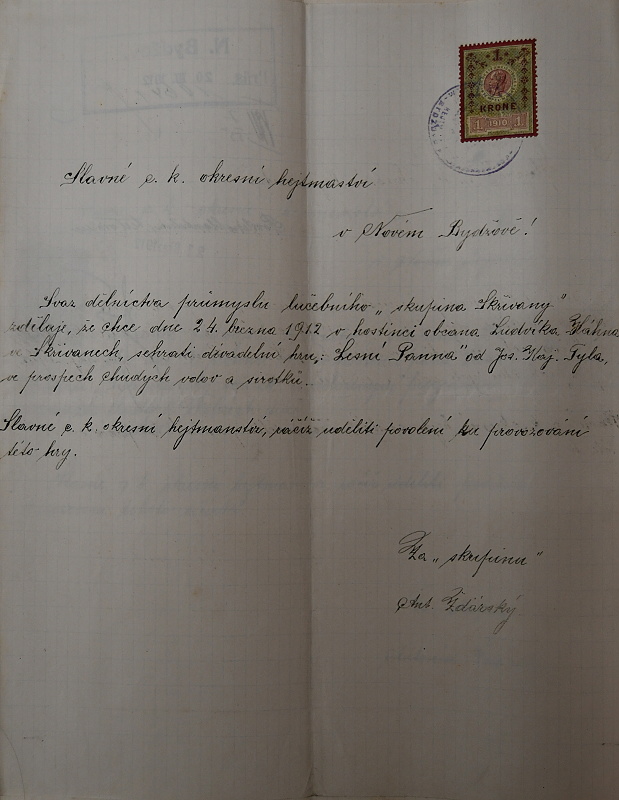 1
KRONE
1 1910 1
Slavné c. k. okresní hejtmaství
v Novém Bydžově!
Svaz dělnictva průmyslu lučebního „skupina Skřivany"
zděluje, že chce dne 24. března 1912 v hostinci občana Ludvíka Bláhna
ve Skřivanech, sehrati divadelní hru: „Lesní Panna" od Jos. Kaj. Tyla,
ve prospěch chudých vdov a sirotků.
Slavné c. k. okresní hejtmanství, račiž uděliti povolení ku provozování
této hry.
Za „skupinu"
Ant. Žďárský